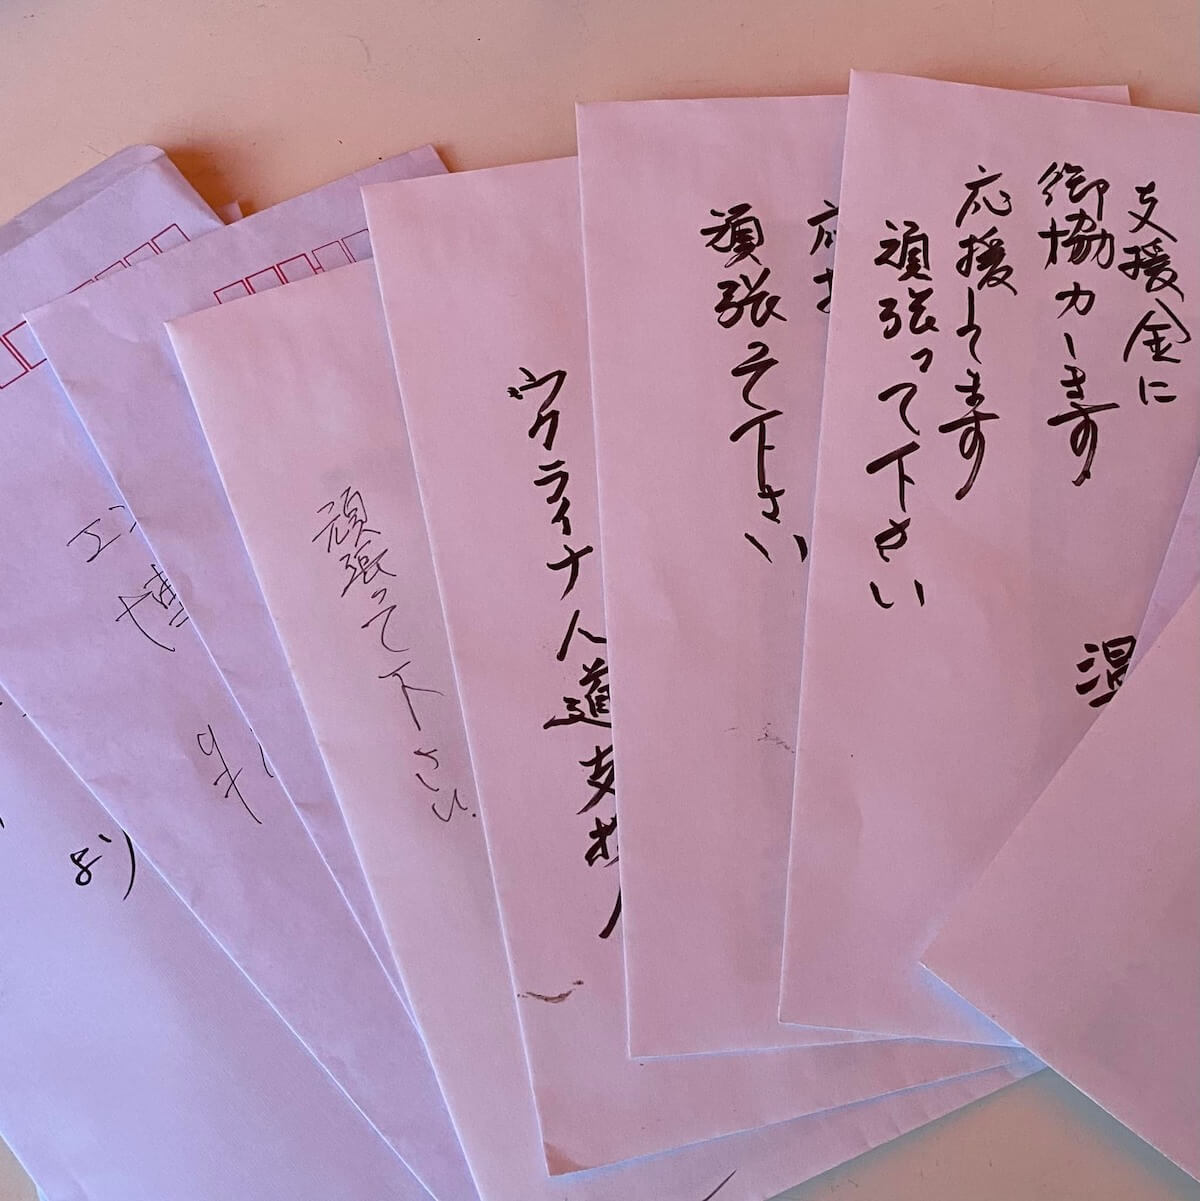 支援金に
御協力します
応援してます
頑張って下さい
温
応
頑張って下さい
ウクライナ人道支援
頑張って下さい
エ
より